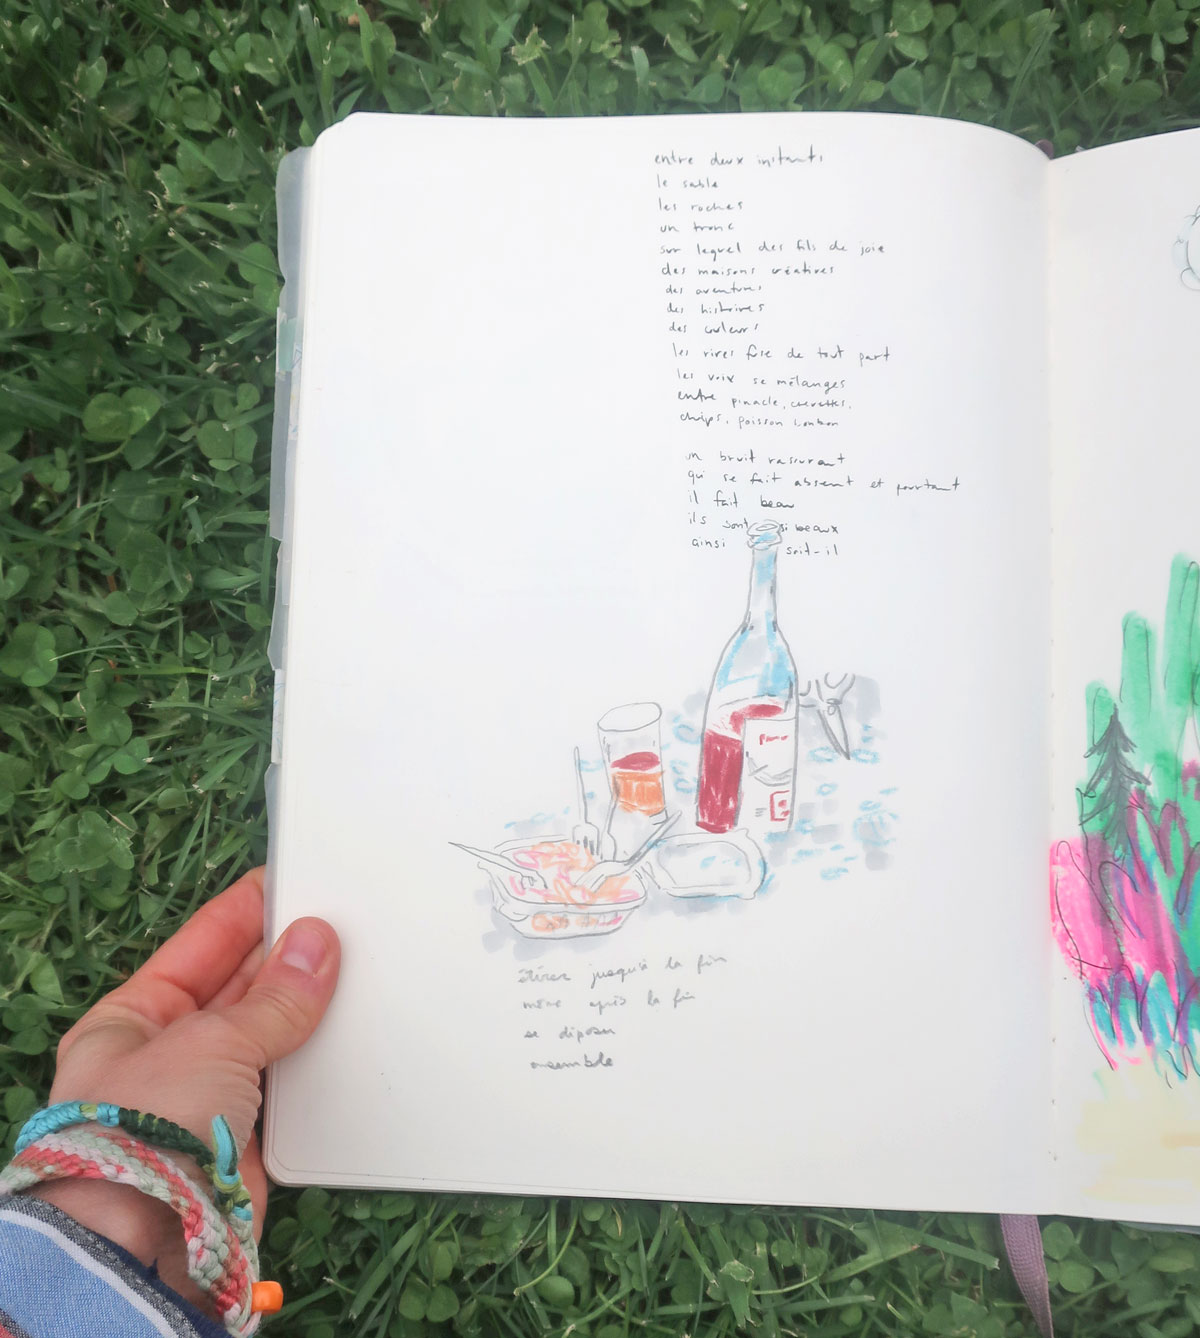 entre deux instants
le sable
les roches
un tronc
sur lequel des fils de joie
des maisons créatives
des aventures
des histoires
des couleurs
les rires fuse de tout part
les voix se mélanges
entre pinacle, crevettes,
chips, poisson
un bruit rassurant
qui se fait absent et pourtant
il fait beau
ils sont si beaux
ainsi soit-il
étirer jusqu'à la fin
même après la fin
se déposer
ensemble